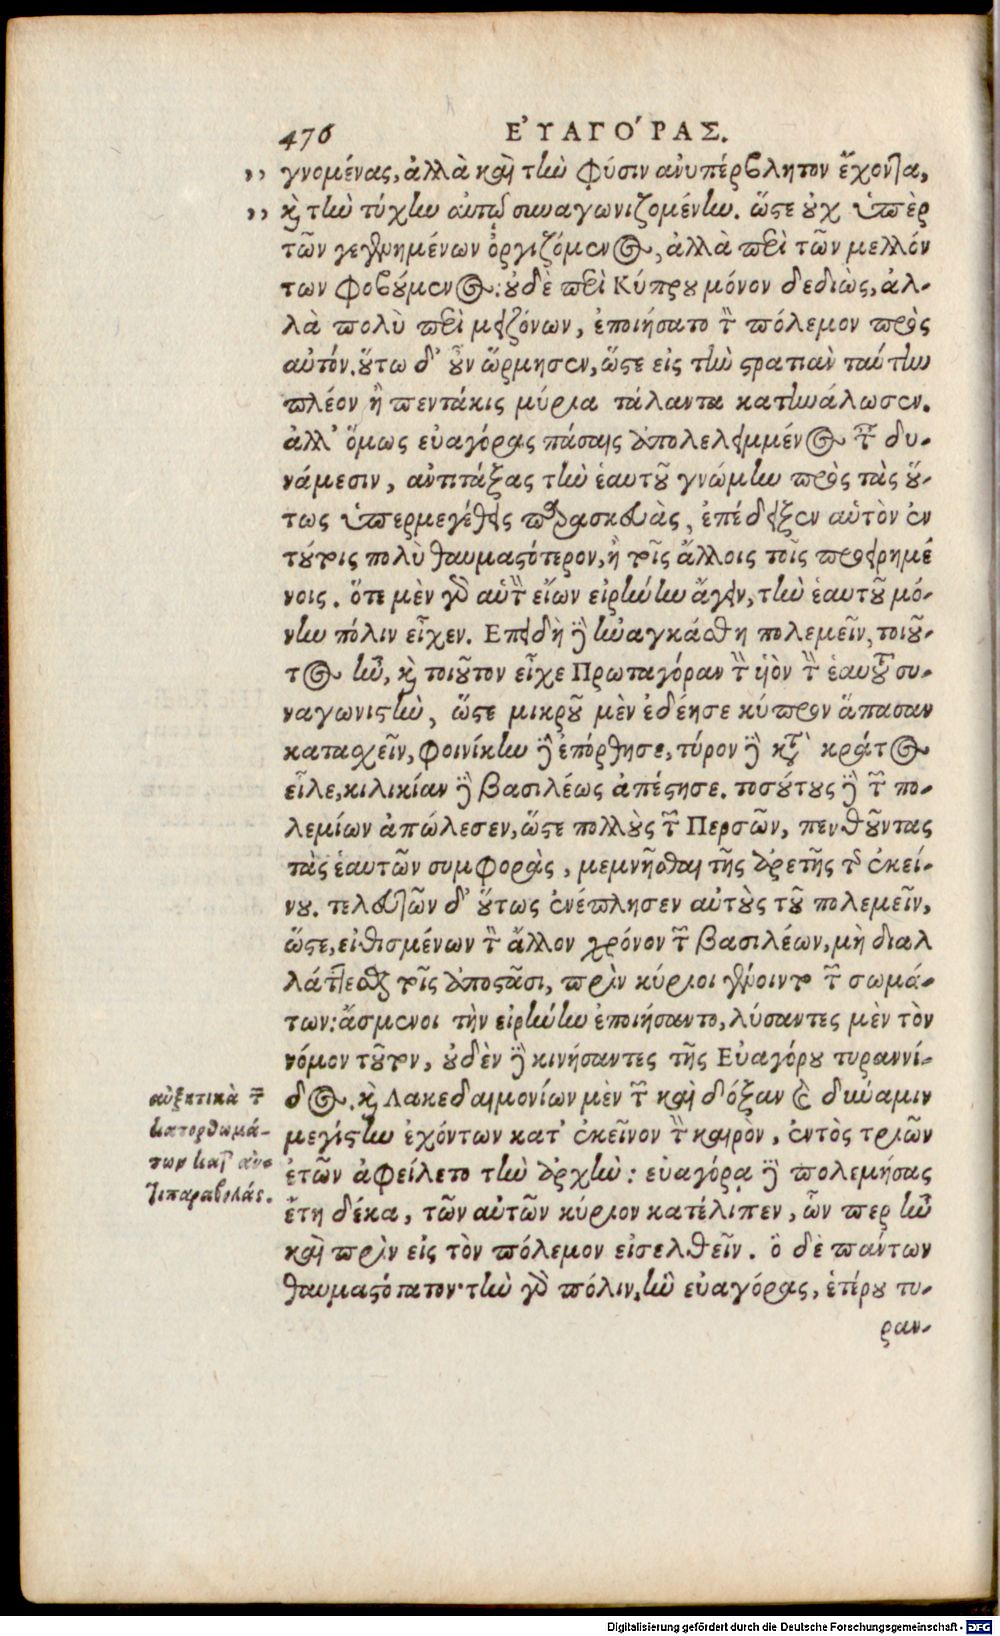 476 ΕὐΑΓΌΡΑΣ.
,, γνομένας, ἀλλὰ καὶ τὴν φύσιν ἀνυπέρβλητον ἔχοντα,
,, καὶ τὴν τύχην αὐτῷ συναγωνιζομένην. ὥστε οὐχ ὑπὲρ
τῶν γεγενημένων ὀργιζόμενος, ἀλλὰ περὶ τῶν μελλόν
των φοβούμενος: οὐδὲ περὶ Κύπρου μόνον δεδιὼς, ἀλ-
λὰ πολὺ περὶ μειζόνων, ἐποιήσατο τὸν πόλεμον πρὸς
αὐτόν. οὕτω δ' οὖν ὥρμησεν, ὥστε εἰς τὴν στρατιὰν ταύτην
πλέον ἢ πεντάκις μύρια τάλαντα κατηνάλωσεν.
ἀλλ' ὅμως εὐαγόρας πάσαις ἀπολελειμμένος τῶν δυ-
νάμεσιν, ἀντιτάξας τὴν ἑαυτοῦ γνώμην πρὸς τὰς οὕ-
τως ὑπερμεγέθεις παρασκευὰς, ἐπέδειξεν αὑτὸν ἐν
τούτοις πολὺ θαυμαστότερον, ἢ τοῖς ἄλλοις τοῖς προειρημέ
νοις. ὅτε μὲν γὰρ αὐτὸν εἴων εἰρήνην ἄγειν, τὴν ἑαυτοῦ μό-
νην πόλιν εἶχεν. Ἐπειδὴ δὲ ἠναγκάσθη πολεμεῖν, τοιοῦ-
τος ἦν, καὶ τοιοῦτον εἶχε Πρωταγόραν τὸν ὑὸν τὸν ἑαυτοῦ συ-
ναγωνιστὴν, ὥστε μικροῦ μὲν ἐδέησε κύπρον ἅπασαν
κατασχεῖν, φοινίκην δὲ ἐπόρθησε, τύρον δὲ κατὰ κράτος
εἷλε, κιλικίαν δὲ βασιλέως ἀπέστησε. τοσούτους δὲ τῶν πο-
λεμίων ἀπώλεσεν, ὥστε πολλοὺς τῶν Περσῶν, πενθοῦντας
τὰς ἑαυτῶν συμφορὰς, μεμνῆσθαι τῆς ἀρετῆς τῆς ἐκεί-
νου. τελευτῶν δ' οὕτως ἐνέπλησεν αὐτοὺς τοῦ πολεμεῖν,
ὥστε, εἰθισμένων τὸν ἄλλον χρόνον τῶν βασιλέων, μὴ διαλ
λάττεσθαι τοῖς ἀποστᾶσι, πρὶν κύριοι γένοιντο τῶν σωμά-
των: ἄσμενοι τὴν εἰρήνην ἐποιήσαντο, λύσαντες μὲν τὸν
νόμον τοῦτον, οὐδὲν δὲ κινήσαντες τῆς Εὐαγόρου τυραννί-
δος. καὶ Λακεδαιμονίων μὲν τῶν καὶ δόξαν καὶ δύναμιν
μεγίστην ἐχόντων κατ' ἐκεῖνον τὸν καιρὸν, ἐντὸς τριῶν
ἐτῶν ἀφείλετο τὴν ἀρχὴν: εὐαγόρᾳ δὲ πολεμήσας
ἔτη δέκα, τῶν αὐτῶν κύριον κατέλιπεν, ὧν περ ἦν
καὶ πρὶν εἰς τὸν πόλεμον εἰσελθεῖν. ὃ δὲ πάντων
θαυμαστότατον· τὴν γὰρ πόλιν, ἣν εὐαγόρας, ἑτέρου τυ-
ραν-
αὐξητικὰ τῶν
κατορθωμά-
των κατ' ἀν-
τιπαραβολάς.
Digitalisierung gefördert durch die Deutsche Forschungsgemeinschaft - DFG